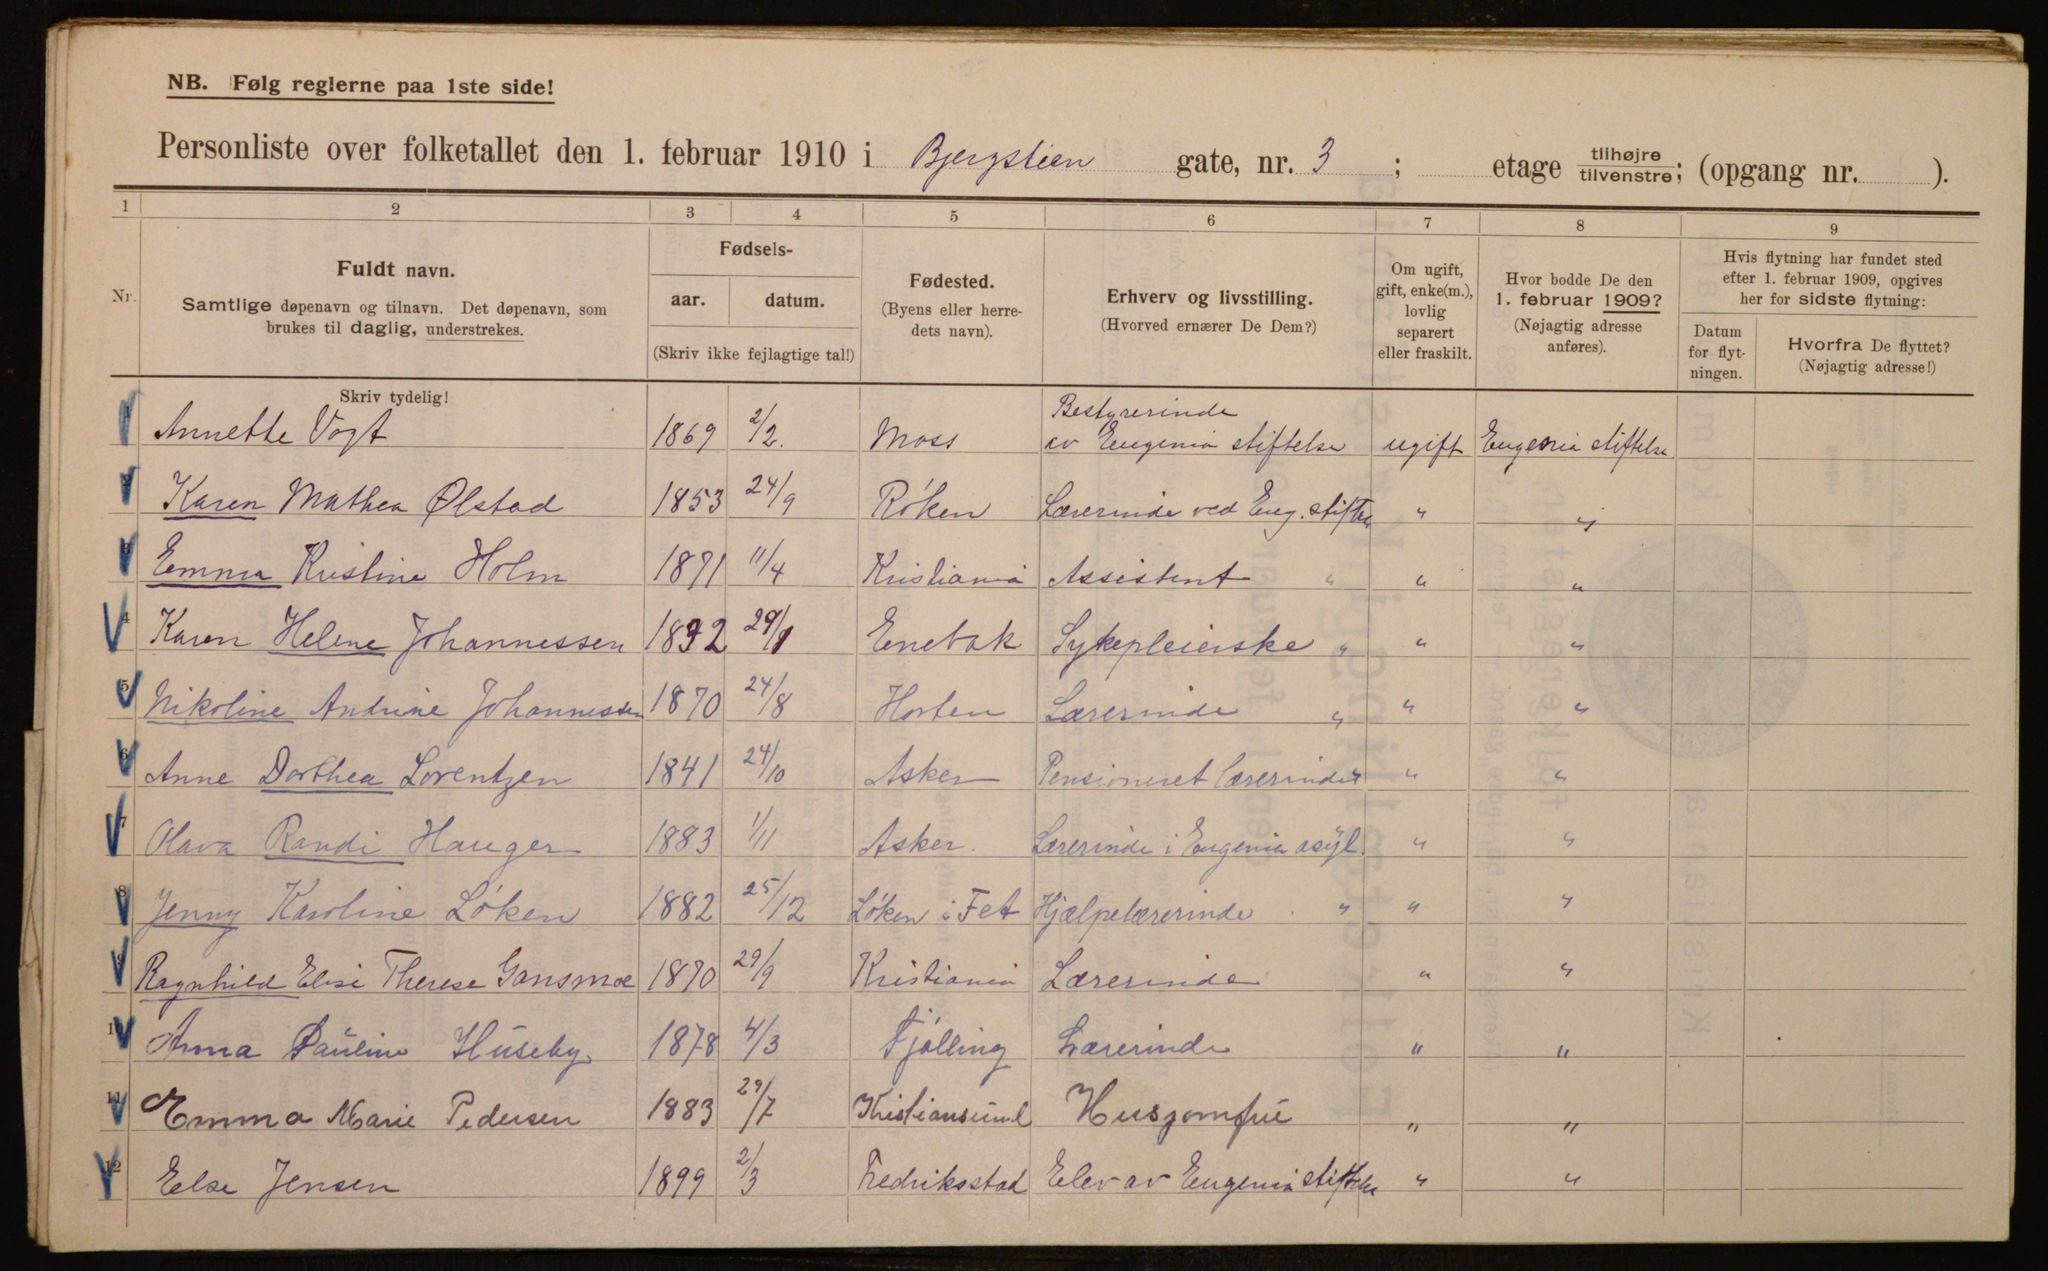 NB. Følg reglerne paa 1ste side!
Personliste over folketallet den 1. februar 1910 i Bjergstien gate, nr. 3 ; etage tilhøjre / tilvenstre; (opgang nr. ).
1 2 3 4 5 6 7 8 9
Nr.
Fuldt navn.
Samtlige døpenavn og tilnavn. Det døpenavn, som
brukes til daglig, understrekes.
Fødsels-
aar. datum.
(Skriv ikke fejlagtige tal!)
Fødested.
(Byens eller herre-
dets navn).
Erhverv og livsstilling.
(Hvorved ernærer De Dem?)
Om ugift,
gift, enke(m.),
lovlig
separert
eller fraskilt.
Hvor bodde De den
1. februar 1909?
(Nøjagtig adresse
anføres).
Hvis flytning har fundet sted
efter 1. februar 1909, opgives
her for sidste flytning:
Datum
for flyt-
ningen.
Hvorfra De flyttet?
(Nøjagtig adresse!)
Skriv tydelig!
1 Annette Vogt 1869 2/2. Moss Bestyrerinde av Eugenia stiftelse ugift Eugenia stiftelse
2 Karen Mathea Ølstad 1853 24/9 Røken Lærerinde ved Eug. stiftelse " "
3 Emma Kristine Holm 1871 11/4 Kristiania Assistent " " "
4 Karen Helene Johannessen 1892 29/1 Enebak Sykepleierske " " "
5 Nikoline Andrine Johannessen 1870 24/8 Horten Lærerinde " " "
6 Anne Dorthea Lorentzen 1841 24/10 Asker Pensioneret lærerinde " " "
7 Olava Randi Hauger 1883 1/11 Asker. Lærerinde i Eugenia asyl. " "
8 Jenny Karoline Løken 1882 25/12 Løken i Fet Hjælpelærerinde " " "
9 Ragnhild Elise Therese Gansmoe 1870 29/9 Kristiania Lærerinde " "
10 Anna Pauline Huseby 1878 4/3 Tjølling Lærerinde " "
11 Emma Marie Pedersen 1883 29/7 Kristiansund Husjomfru " "
12 Else Jensen 1899 2/3 Fredriksstad Elev av Eugenia stiftelse " "